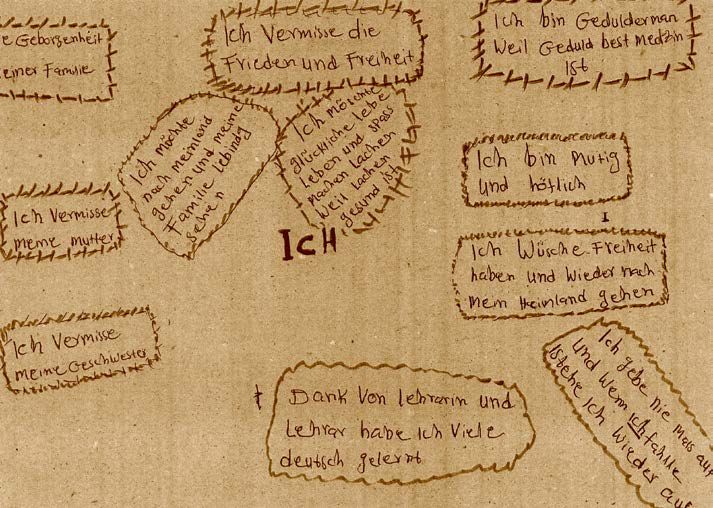 e Geborgenheit
einer Familie
Ich Vermisse die
Frieden und Freiheit
Ich bin Gedulderman
Weil Geduld best Medzin
Ist
Ich möchte
nach meinland
gehen und meine
Familie lebindg
sehen
Ich möschte
glückliche lebe
leben und spass
machen lachen
Weil lachen
gesund ist
Ich bin mutig
und höflich
Ich Vermisse
meme mutter
ICH
I
Ich Wüsche Freiheit
haben und Wieder nach
mein Heinland gehen
Ich Vermisse
meine Geschwester
Dank Von lehrarin und
Lehrar habe ich Viele
deutsch gelernt
Ich gebe nie mals auf
und Wenn ich fahlle
stehe Ich Wieder auf